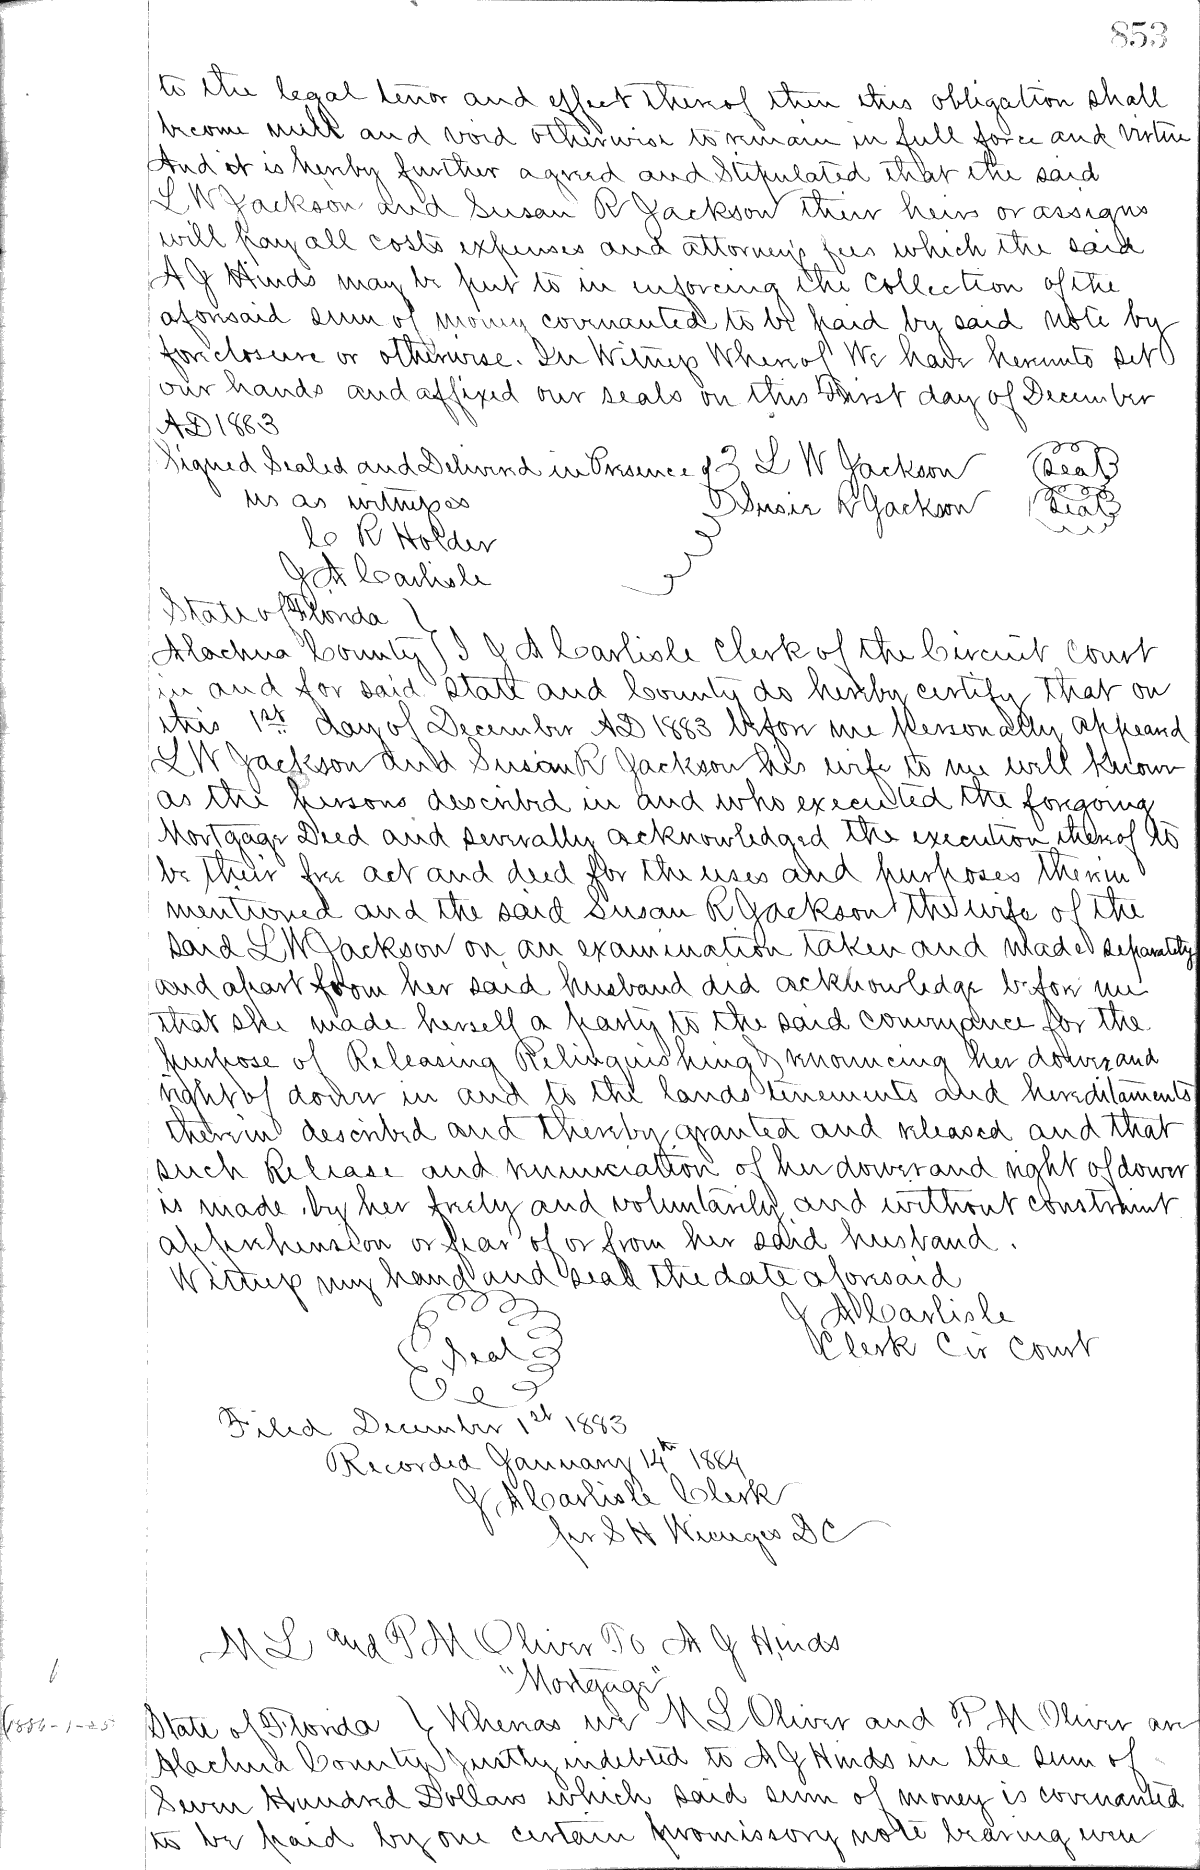 853
to the legal tenor and effect thereof then this obligation shall
become null and void otherwise to remain in full force and virtue
And it is hereby further agreed and Stipulated that the said
L W Jackson and Susan R Jackson their heirs or assigns
will pay all costs expenses and attorneys fees which the said
A G Hinds may be put to in enforcing the Collection of the
aforesaid sum of money covenanted to be paid by said note by
foreclosure or otherwise. In Witness Whereof We have hereunto set
our hands and affixed our seals on this First day of December
AD 1883
Signed Sealed and Delivered in Presence of } L W Jackson (Seal)
us as witnesses Susie R Jackson (Seal)
C R Holder
J A Carlisle
State of Florida }
Alachua County } I J A Carlisle Clerk of the Circuit Court
in and for said State and County do hereby certify that on
this 1st day of December AD 1883 before me personally appeared
L W Jackson and Susan R Jackson his wife to me well known
as the persons described in and who executed the foregoing
Mortgage Deed and severally acknowledged the execution thereof to
be their free act and deed for the uses and purposes therein
mentioned and the said Susan R Jackson the wife of the
said L W Jackson on an examination taken and made separately
and apart from her said husband did acknowledge before me
that she made herself a party to the said conveyance for the
purpose of Releasing Relinquishing & renouncing her dower and
right of dower in and to the lands tenements and hereditaments
therein described and thereby granted and released and that
such Release and renunciation of her dower and right of dower
is made by her freely and voluntarily and without constraint
apprehension or fear of or from her said husband.
Witness my hand and seal the date aforesaid
J A Carlisle
(Seal) Clerk Cir Court
Filed December 1st 1883
Recorded January 14th 1884
J A Carlisle Clerk
per S H Wienges DC
M L and P M Oliver To A G Hinds
"Mortgage"
1886-1-25
State of Florida } Whereas we M L Oliver and P M Oliver are
Alachua County } Justly indebted to A G Hinds in the sum of
Seven Hundred Dollars which said sum of money is covenanted
to be paid by one certain promissory note bearing even